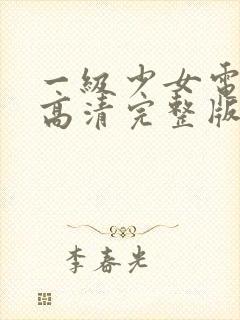 一级少女电
高清完整版
李春光